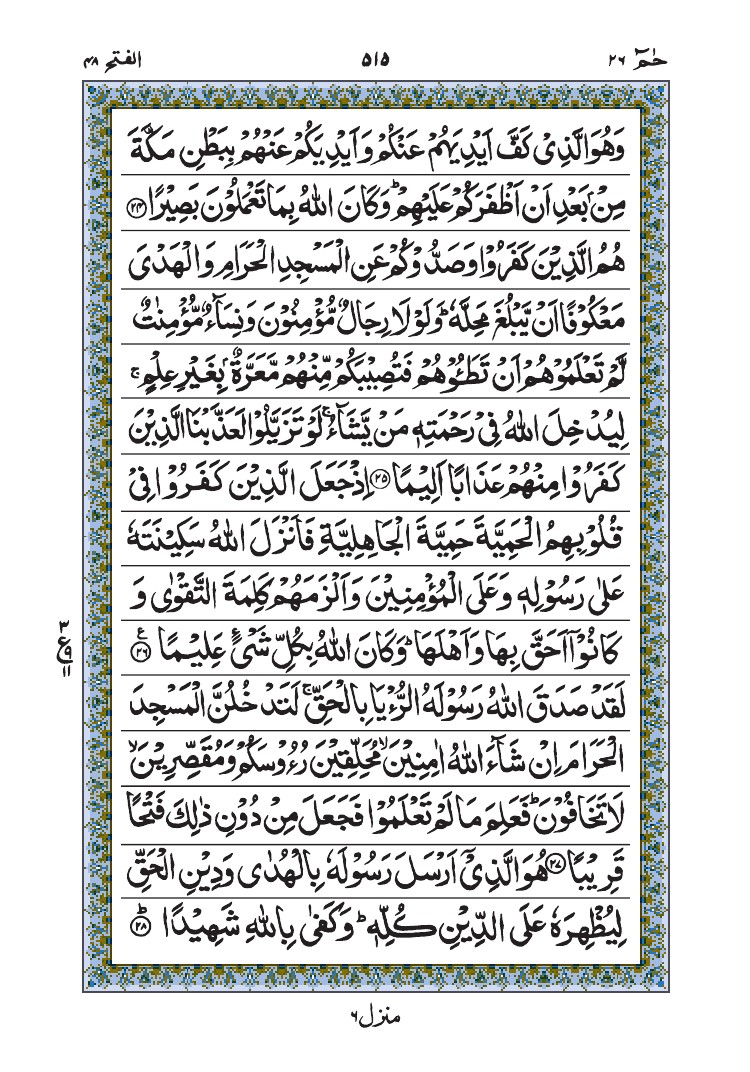 حٰمٓ ٢٦ ٥١٥ الفتح ٤٨
وَهُوَ الَّذِىْ كَفَّ اَيْدِيَهُمْ عَنْكُمْ وَاَيْدِيَكُمْ عَنْهُمْ بِبَطْنِ مَكَّةَ
مِنْۢ بَعْدِ اَنْ اَظْفَرَكُمْ عَلَيْهِمْ ؕ وَكَانَ اللّٰهُ بِمَا تَعْمَلُوْنَ بَصِيْرًا ﴿٢٤﴾
هُمُ الَّذِيْنَ كَفَرُوْا وَصَدُّوْكُمْ عَنِ الْمَسْجِدِ الْحَرَامِ وَالْهَدْىَ
مَعْكُوْفًا اَنْ يَّبْلُغَ مَحِلَّهٗ ؕ وَلَوْلَا رِجَالٌ مُّؤْمِنُوْنَ وَنِسَآءٌ مُّؤْمِنٰتٌ
لَّمْ تَعْلَمُوْهُمْ اَنْ تَطَئُوْهُمْ فَتُصِيْبَكُمْ مِّنْهُمْ مَّعَرَّةٌۢ بِغَيْرِ عِلْمٍ ۚ
لِيُدْخِلَ اللّٰهُ فِىْ رَحْمَتِهٖ مَنْ يَّشَآءُ ۚ لَوْ تَزَيَّلُوْا لَعَذَّبْنَا الَّذِيْنَ
كَفَرُوْا مِنْهُمْ عَذَابًا اَلِيْمًا ﴿٢٥﴾ اِذْ جَعَلَ الَّذِيْنَ كَفَرُوْا فِىْ
قُلُوْبِهِمُ الْحَمِيَّةَ حَمِيَّةَ الْجَاهِلِيَّةِ فَاَنْزَلَ اللّٰهُ سَكِيْنَتَهٗ
عَلٰى رَسُوْلِهٖ وَعَلَى الْمُؤْمِنِيْنَ وَاَلْزَمَهُمْ كَلِمَةَ التَّقْوٰى وَ
كَانُوْۤا اَحَقَّ بِهَا وَاَهْلَهَا ؕ وَكَانَ اللّٰهُ بِكُلِّ شَىْءٍ عَلِيْمًا ﴿٢٦﴾ ع
٣ ع ٩ ١١
لَقَدْ صَدَقَ اللّٰهُ رَسُوْلَهُ الرُّءْيَا بِالْحَقِّ ۚ لَتَدْخُلُنَّ الْمَسْجِدَ
الْحَرَامَ اِنْ شَآءَ اللّٰهُ اٰمِنِيْنَ ۙ مُحَلِّقِيْنَ رُءُوْسَكُمْ وَمُقَصِّرِيْنَ ۙ
لَا تَخَافُوْنَ ؕ فَعَلِمَ مَا لَمْ تَعْلَمُوْا فَجَعَلَ مِنْ دُوْنِ ذٰلِكَ فَتْحًا
قَرِيْبًا ﴿٢٧﴾ هُوَ الَّذِىْۤ اَرْسَلَ رَسُوْلَهٗ بِالْهُدٰى وَدِيْنِ الْحَقِّ
لِيُظْهِرَهٗ عَلَى الدِّيْنِ كُلِّهٖ ؕ وَكَفٰى بِاللّٰهِ شَهِيْدًا ﴿٢٨﴾ ؕ
منزل ٦